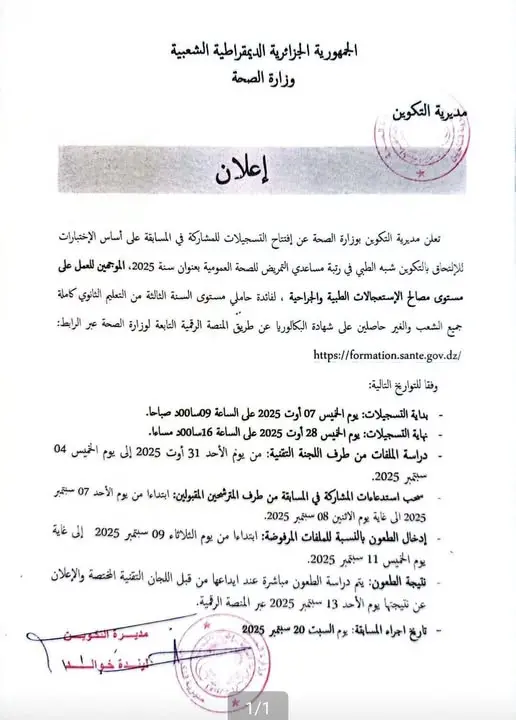 الجمهورية الجزائرية الديمقراطية الشعبية
وزارة الصحة
مديرية التكوين
إعلان
تعلن مديرية التكوين بوزارة الصحة عن إفتتاح التسجيلات للمشاركة في المسابقة على أساس الإختبارات
للإلتحاق بالتكوين شبه الطبي في رتبة مساعدي التمريض للصحة العمومية بعنوان سنة 2025، الموجهين للعمل على
مستوى مصالح الإستعجالات الطبية والجراحية ، لفائدة حاملي مستوى السنة الثالثة من التعليم الثانوي كاملة
جميع الشعب والغير حاصلين على شهادة البكالوريا عن طريق المنصة الرقمية التابعة لوزارة الصحة عبر الرابط:
https://formation.sante.gov.dz/
وفقا للتواريخ التالية:
- بداية التسجيلات: يوم الخميس 07 أوت 2025 على الساعة 09سا00د صباحا.
- نهاية التسجيلات: يوم الخميس 28 أوت 2025 على الساعة 16سا00د مساءا.
- دراسة الملفات من طرف اللجنة التقنية: من يوم الأحد 31 أوت 2025 إلى يوم الخميس 04
سبتمبر 2025.
- سحب استدعاءات المشاركة في المسابقة من طرف المترشحين المقبولين: ابتداءا من يوم الأحد 07 سبتمبر
2025 الى غاية يوم الاثنين 08 سبتمبر 2025.
- إدخال الطعون بالنسبة للملفات المرفوضة: ابتداءا من يوم الثلاثاء 09 سبتمبر 2025 إلى غاية
يوم الخميس 11 سبتمبر 2025.
- نتيجة الطعون: يتم دراسة الطعون مباشرة عند ايداعها من قبل اللجان التقنية المختصة والإعلان
عن نتيجتها يوم الأحد 13 سبتمبر 2025 عبر المنصة الرقمية.
- تاريخ اجراء المسابقة: يوم السبت 20 سبتمبر 2025
مديرة التكوين
ليندة خوالد
1/1